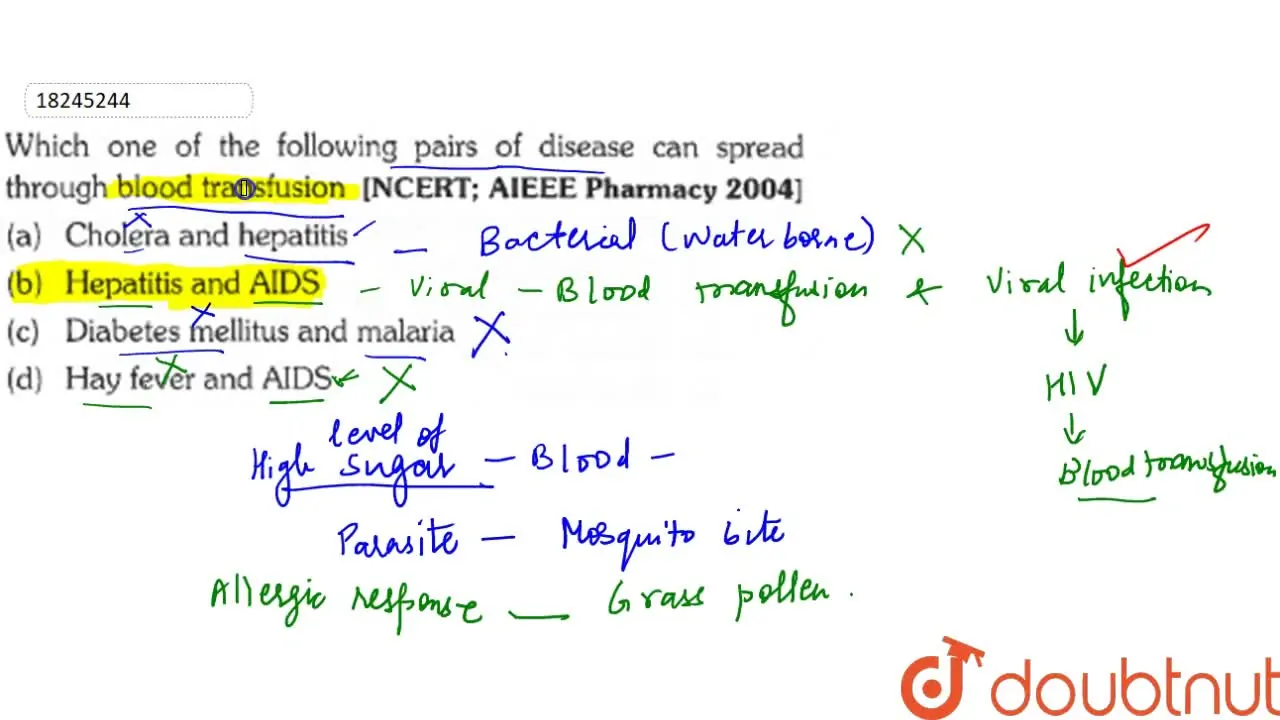 18245244
Which one of the following pairs of disease can spread
through blood transfusion [NCERT; AIEEE Pharmacy 2004]
(a) Cholera and hepatitis — Bacterial (Water borne) X
(b) Hepatitis and AIDS – Viral – Blood transfusion & Viral infection
(c) Diabetes mellitus and malaria X
(d) Hay fever and AIDS X
HIV
Blood transfusion
level of
High Sugar – Blood –
Parasite – Mosquito bite
Allergic response — Grass pollen.
doubtnut